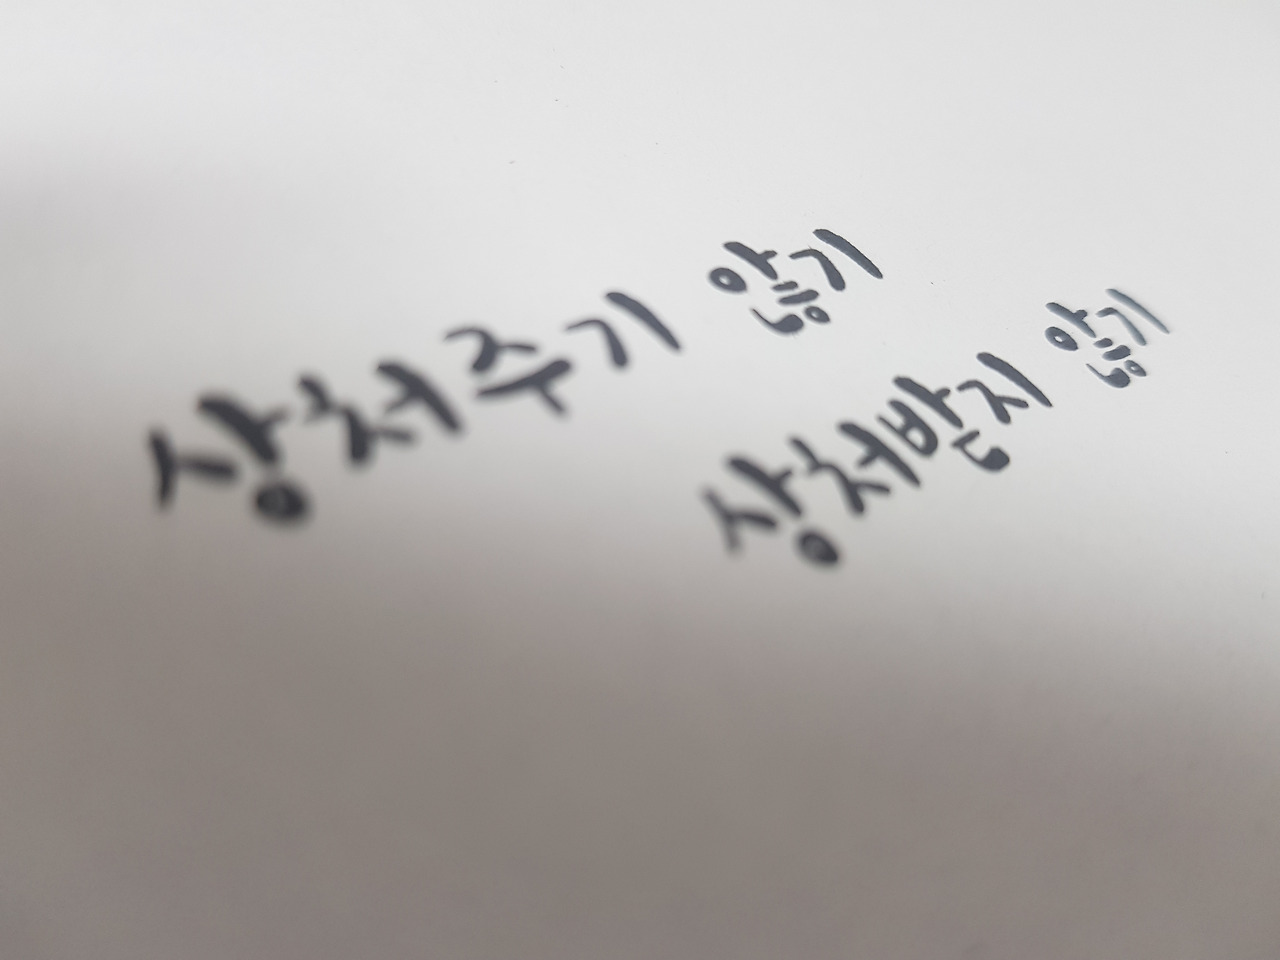 상처주기 않기
상처받지 않기